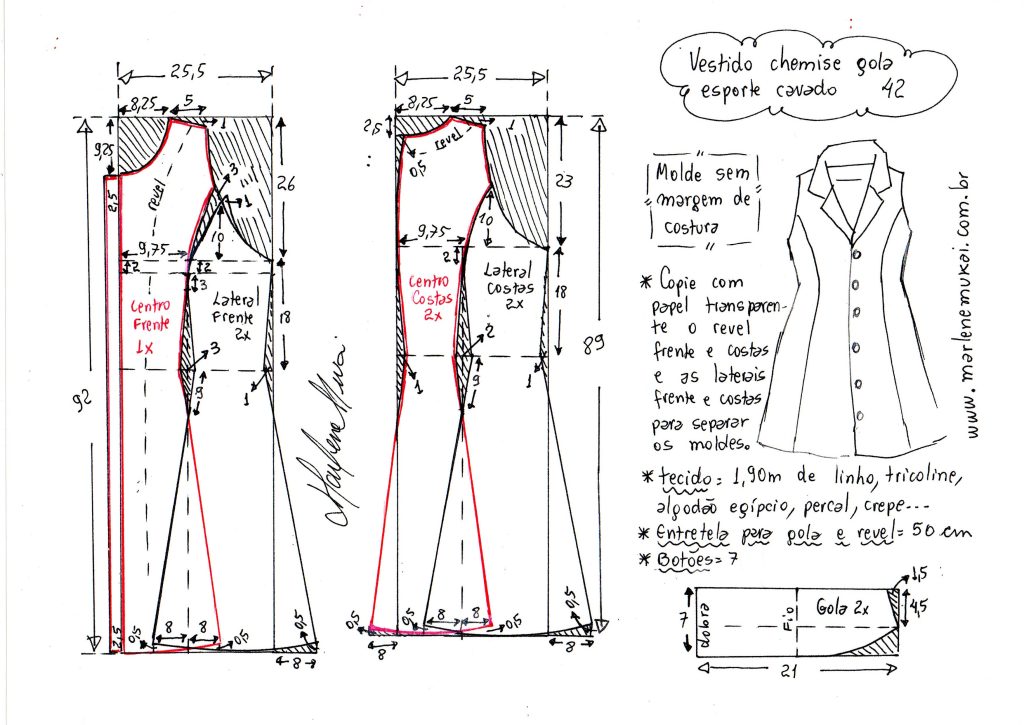 Vestido chemise gola
esporte cavado 42
25,5
8,25
5
1
9,25
2,5
revel
3
1
10
26
9,75
2
2
3
Centro
Frente
1x
Lateral
Frente
2x
18
3
9
1
92
2,5
0,5
8
8
0,5
0,5
8
25,5
8,25
5
1
2,5
0,5
revel
23
10
9,75
2
Centro
Costas
2x
Lateral
Costas
2x
18
2
9
1
1
89
0,5
8
8
0,5
0,5
8
8
Molde sem
margem de
costura
* Copie com
papel transparen-
te o revel
frente e costas
e as laterais
frente e costas
para separar
os moldes.
www.marlenemukai.com.br
* tecido = 1,90m de linho, tricoline,
algodão egípcio, percal, crepe---
* Entretela para gola e revel = 50 cm
* Botões = 7
7
dobra
Fio
Gola 2x
1,5
4,5
21